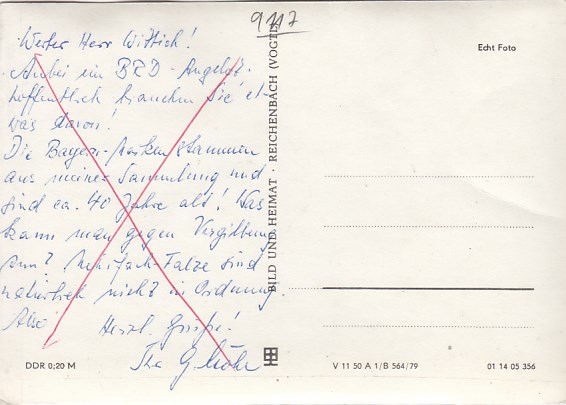 9117
Werter Herr Wittich!
Anbei ein BRD-Angebot.
Hoffentlich brauchen Sie et-
was davon!
Die Bayern-Marken stammen
aus meiner Sammlung und
sind ca. 40 Jahre alt! Was
kann man gegen Vergilbung
tun? Falze sind
natürlich nicht in Ordnung.
Also
Herzl. Grüße!
Ihr G.
BILD UND HEIMAT · REICHENBACH (VOGTL
Echt Foto
DDR 0,20 M
V 11 50 A 1/B 564/79
01 14 05 356